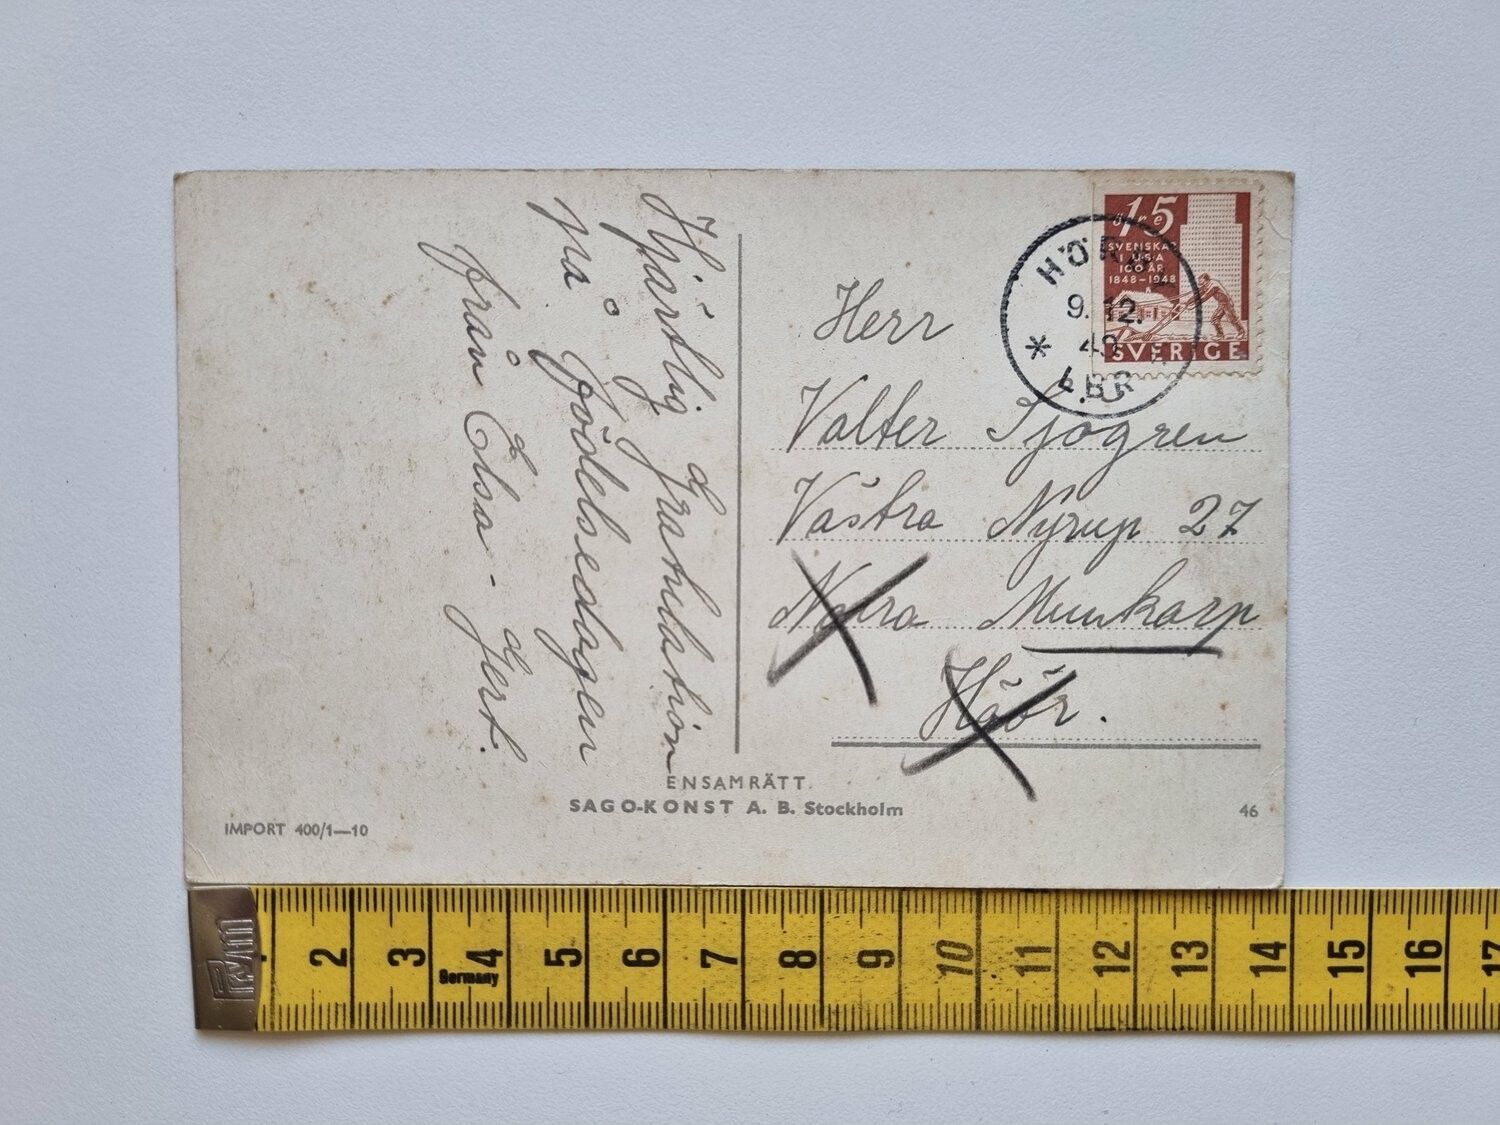 Hjärtlig Gratulation
på födelsedagen
från Elsa - Gert.
15
öre
SVENSKAR
I USA
100 ÅR
1848-1948
SVERIGE
9.12.
49
*
LBR
Herr
Valter Sjögren
Västra Nyrup 27
Norra Munkarp
Höör.
ENSAMRÄTT.
SAGO-KONST A. B. Stockholm
IMPORT 400/1—10
46
Prym
2 3 4 5 6 7 8 9 10 11 12 13 14 15 16 17
Germany